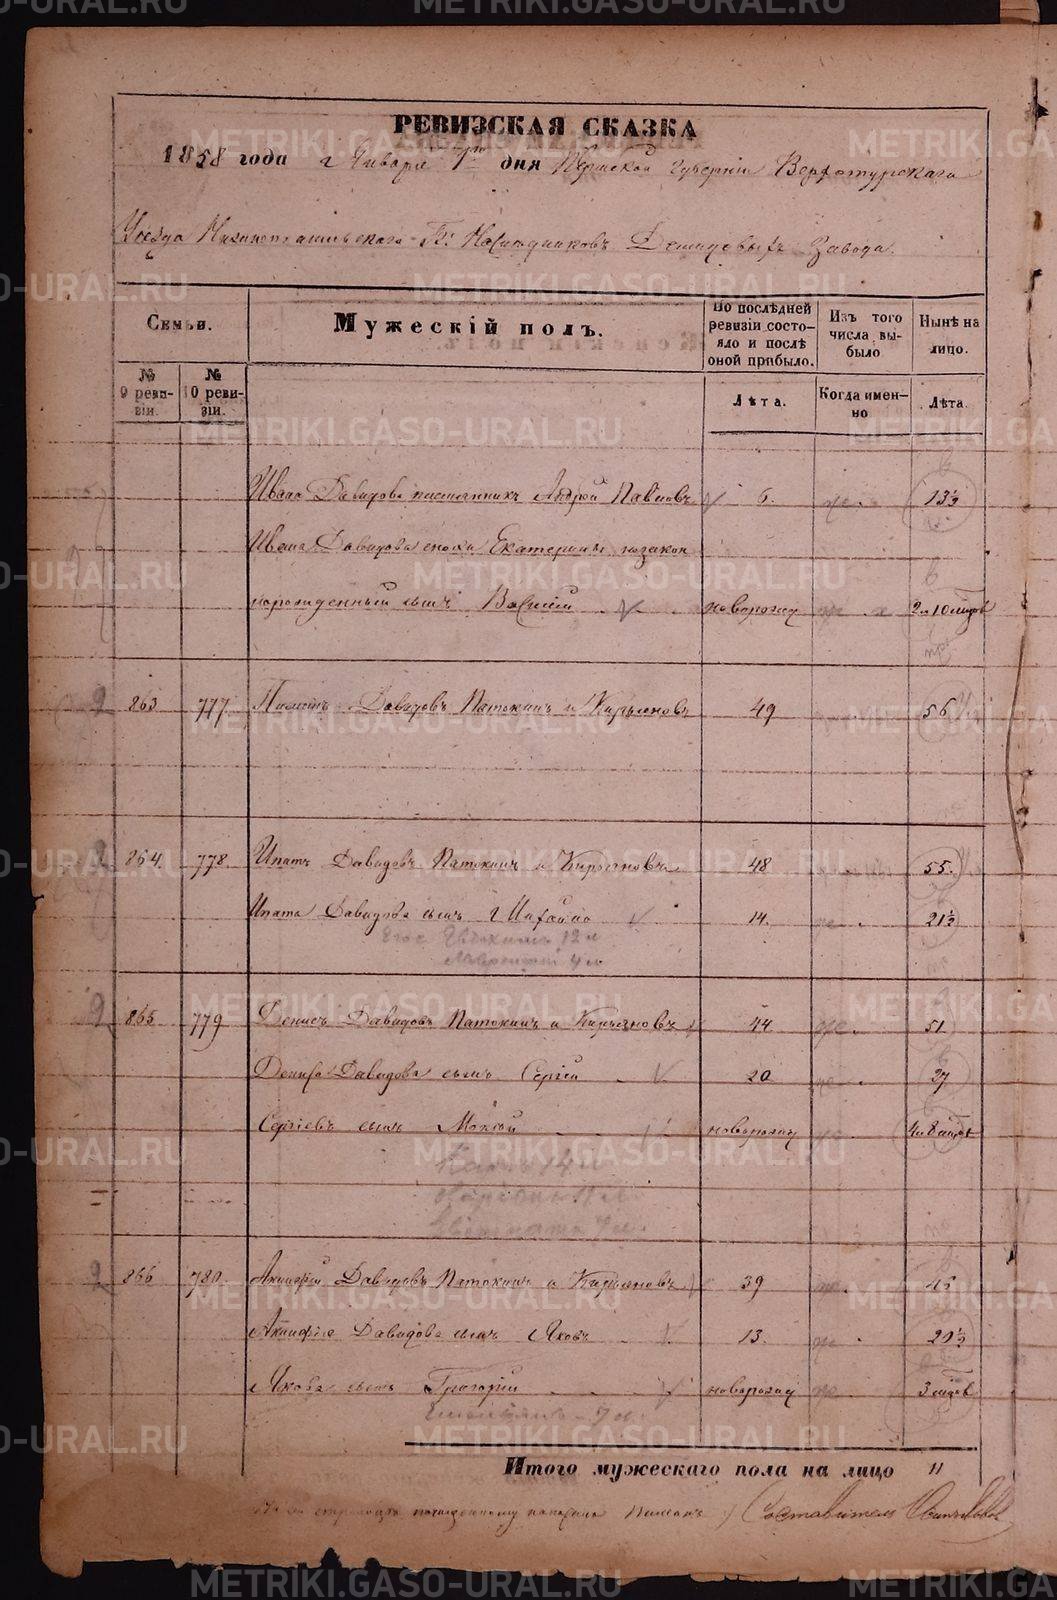 РЕВИЗСКАЯ СКАЗКА
1858 года Января 1го дня Пермской Губернiи Верхотурскаго
Уѣзда Нижнетагильскаго Гг. Наслѣдниковъ Демидовыхъ Завода.
Семьи.
Мужескiй полъ.
По послѣдней ревизiи состояло и послѣ оной прибыло.
Изъ того числа выбыло
Нынѣ на лицо.
№ 9 ревизiи.
№ 10 ревизiи.
Лѣта.
Когда именно
Лѣта.
Ивана Давидова племянникъ Андрей Павловъ 6. 13½
Ивана Давидова снохи Екатерины незакон
норожденный сынъ Василiй новорожд 2 л 10 мцовъ
863 777 Пименъ Давидовъ Патокинъ и Кирьяновъ 49 56
864. 778. Ипатъ Давидовъ Патокинъ и Кирьяновъ 48 55.
Ипата Давидова сынъ Михайло 14. 21½
Евдокимъ 12 л
Лаврентiй 4 л
865 779 Денисъ Давидовъ Патокинъ и Кирьяновъ 44 51
Дениса Давидова сынъ Сергiй 20 27
Сергiевъ сынъ Мокiй новорожд 4 л 8 мцовъ
14 л
11 л.
7 л.
866 780. Акинфiй Давидовъ Патокинъ и Кирьяновъ 39 46
Акинфiя Давидова сынъ Яковъ 13. 20½
Якова сынъ Григорiй новорожд 3 мцов
7 л.
Итого мужескаго пола на лицо 11
На сей страницѣ Пименъ Составитель
METRIKI.GASO-URAL.RU